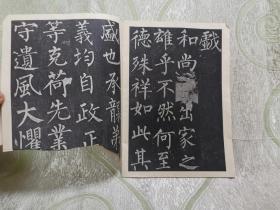 戲
和尚出家之
雄乎不然何至
德殊祥如此其
盛也承襲弟
義均自政正
等克荷先業
守遺風大懼